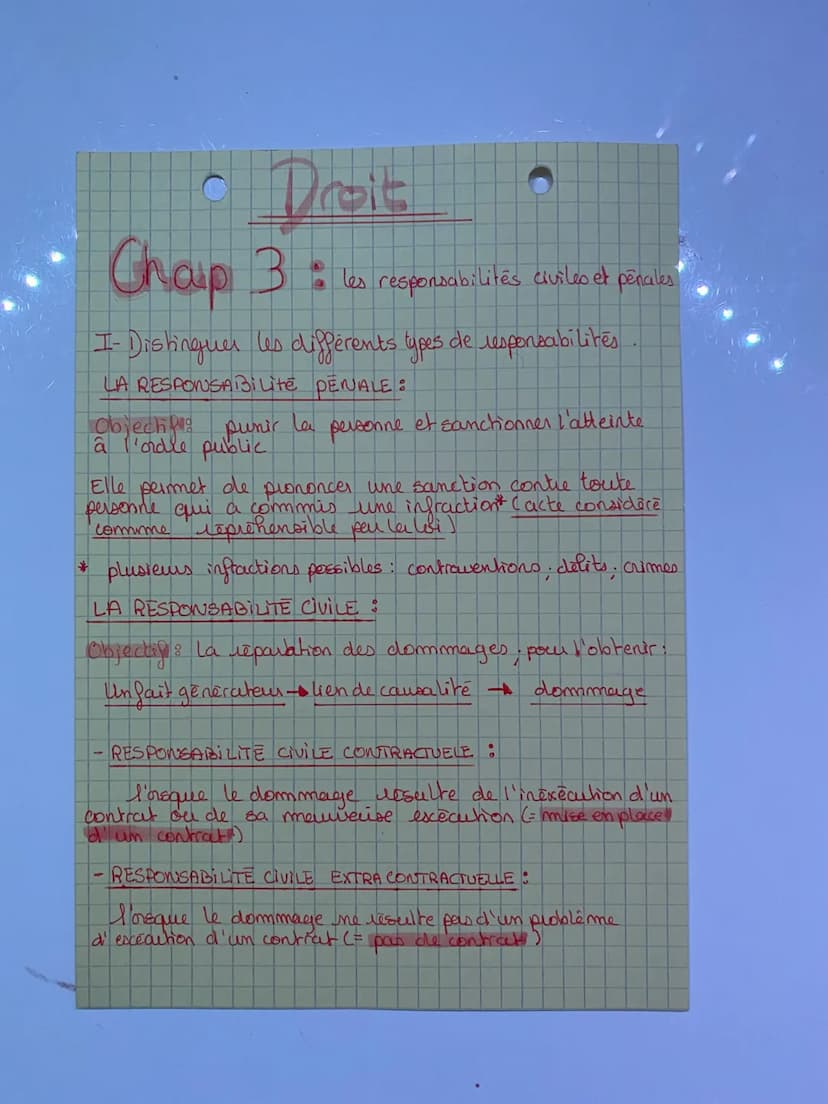 Droit
Chap 3 : les responsabilités civiles et pénales
I- Distinguer les différents types de responsabilités.
LA RESPONSABILITÉ PÉNALE :
Objectif : punir la personne et sanctionner l'atteinte
à l'ordre public
Elle permet de prononcer une sanction contre toute
personne qui a commis une infraction* (acte considéré
comme répréhensible par la loi)
* plusieurs infractions possibles : contraventions ; délits ; crimes
LA RESPONSABILITÉ CIVILE :
Objectif : La réparation des dommages ; pour l'obtenir :
Un fait générateur → lien de causalité → dommage
- RESPONSABILITÉ CIVILE CONTRACTUELE :
lorsque le dommage résulte de l'inéxécution d'un
contrat ou de sa mauvaise exécution (= mise en place
d'un contrat)
- RESPONSABILITÉ CIVILE EXTRA CONTRACTUELLE :
lorsque le dommage ne résulte pas d'un problème
d'exécution d'un contrat (= pas de contrat)